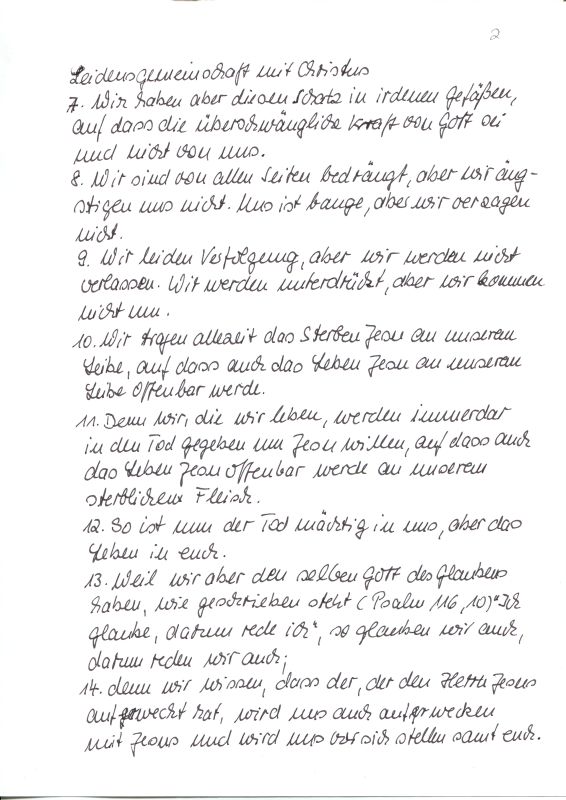 2
Leidensgemeinschaft mit Christus
7. Wir haben aber diesen Schatz in irdenen Gefäßen,
auf dass die überschwängliche Kraft von Gott sei
und nicht von uns.
8. Wir sind von allen Seiten bedrängt, aber wir äng-
stigen uns nicht. Uns ist bange, aber wir verzagen
nicht.
9. Wir leiden Verfolgung, aber wir werden nicht
verlassen. Wir werden unterdrückt, aber wir kommen
nicht um.
10. Wir tragen allezeit das Sterben Jesu an unserem
Leibe, auf dass auch das Leben Jesu an unserem
Leibe offenbar werde.
11. Denn wir, die wir leben, werden immerdar
in den Tod gegeben um Jesu willen, auf dass auch
das Leben Jesu offenbar werde an unserem
sterblichem Fleisch.
12. So ist nun der Tod mächtig in uns, aber das
Leben in euch.
13. Weil wir aber den selben Gott des Glaubens
haben, wie geschrieben steht (Psalm 116,10) "Ich
glaube, darum rede ich", so glauben wir auch,
darum reden wir auch;
14. denn wir wissen, dass der, der den Herrn Jesus
auferweckt hat, wird uns auch auferwecken
mit Jesus und wird uns vor sich stellen samt euch.